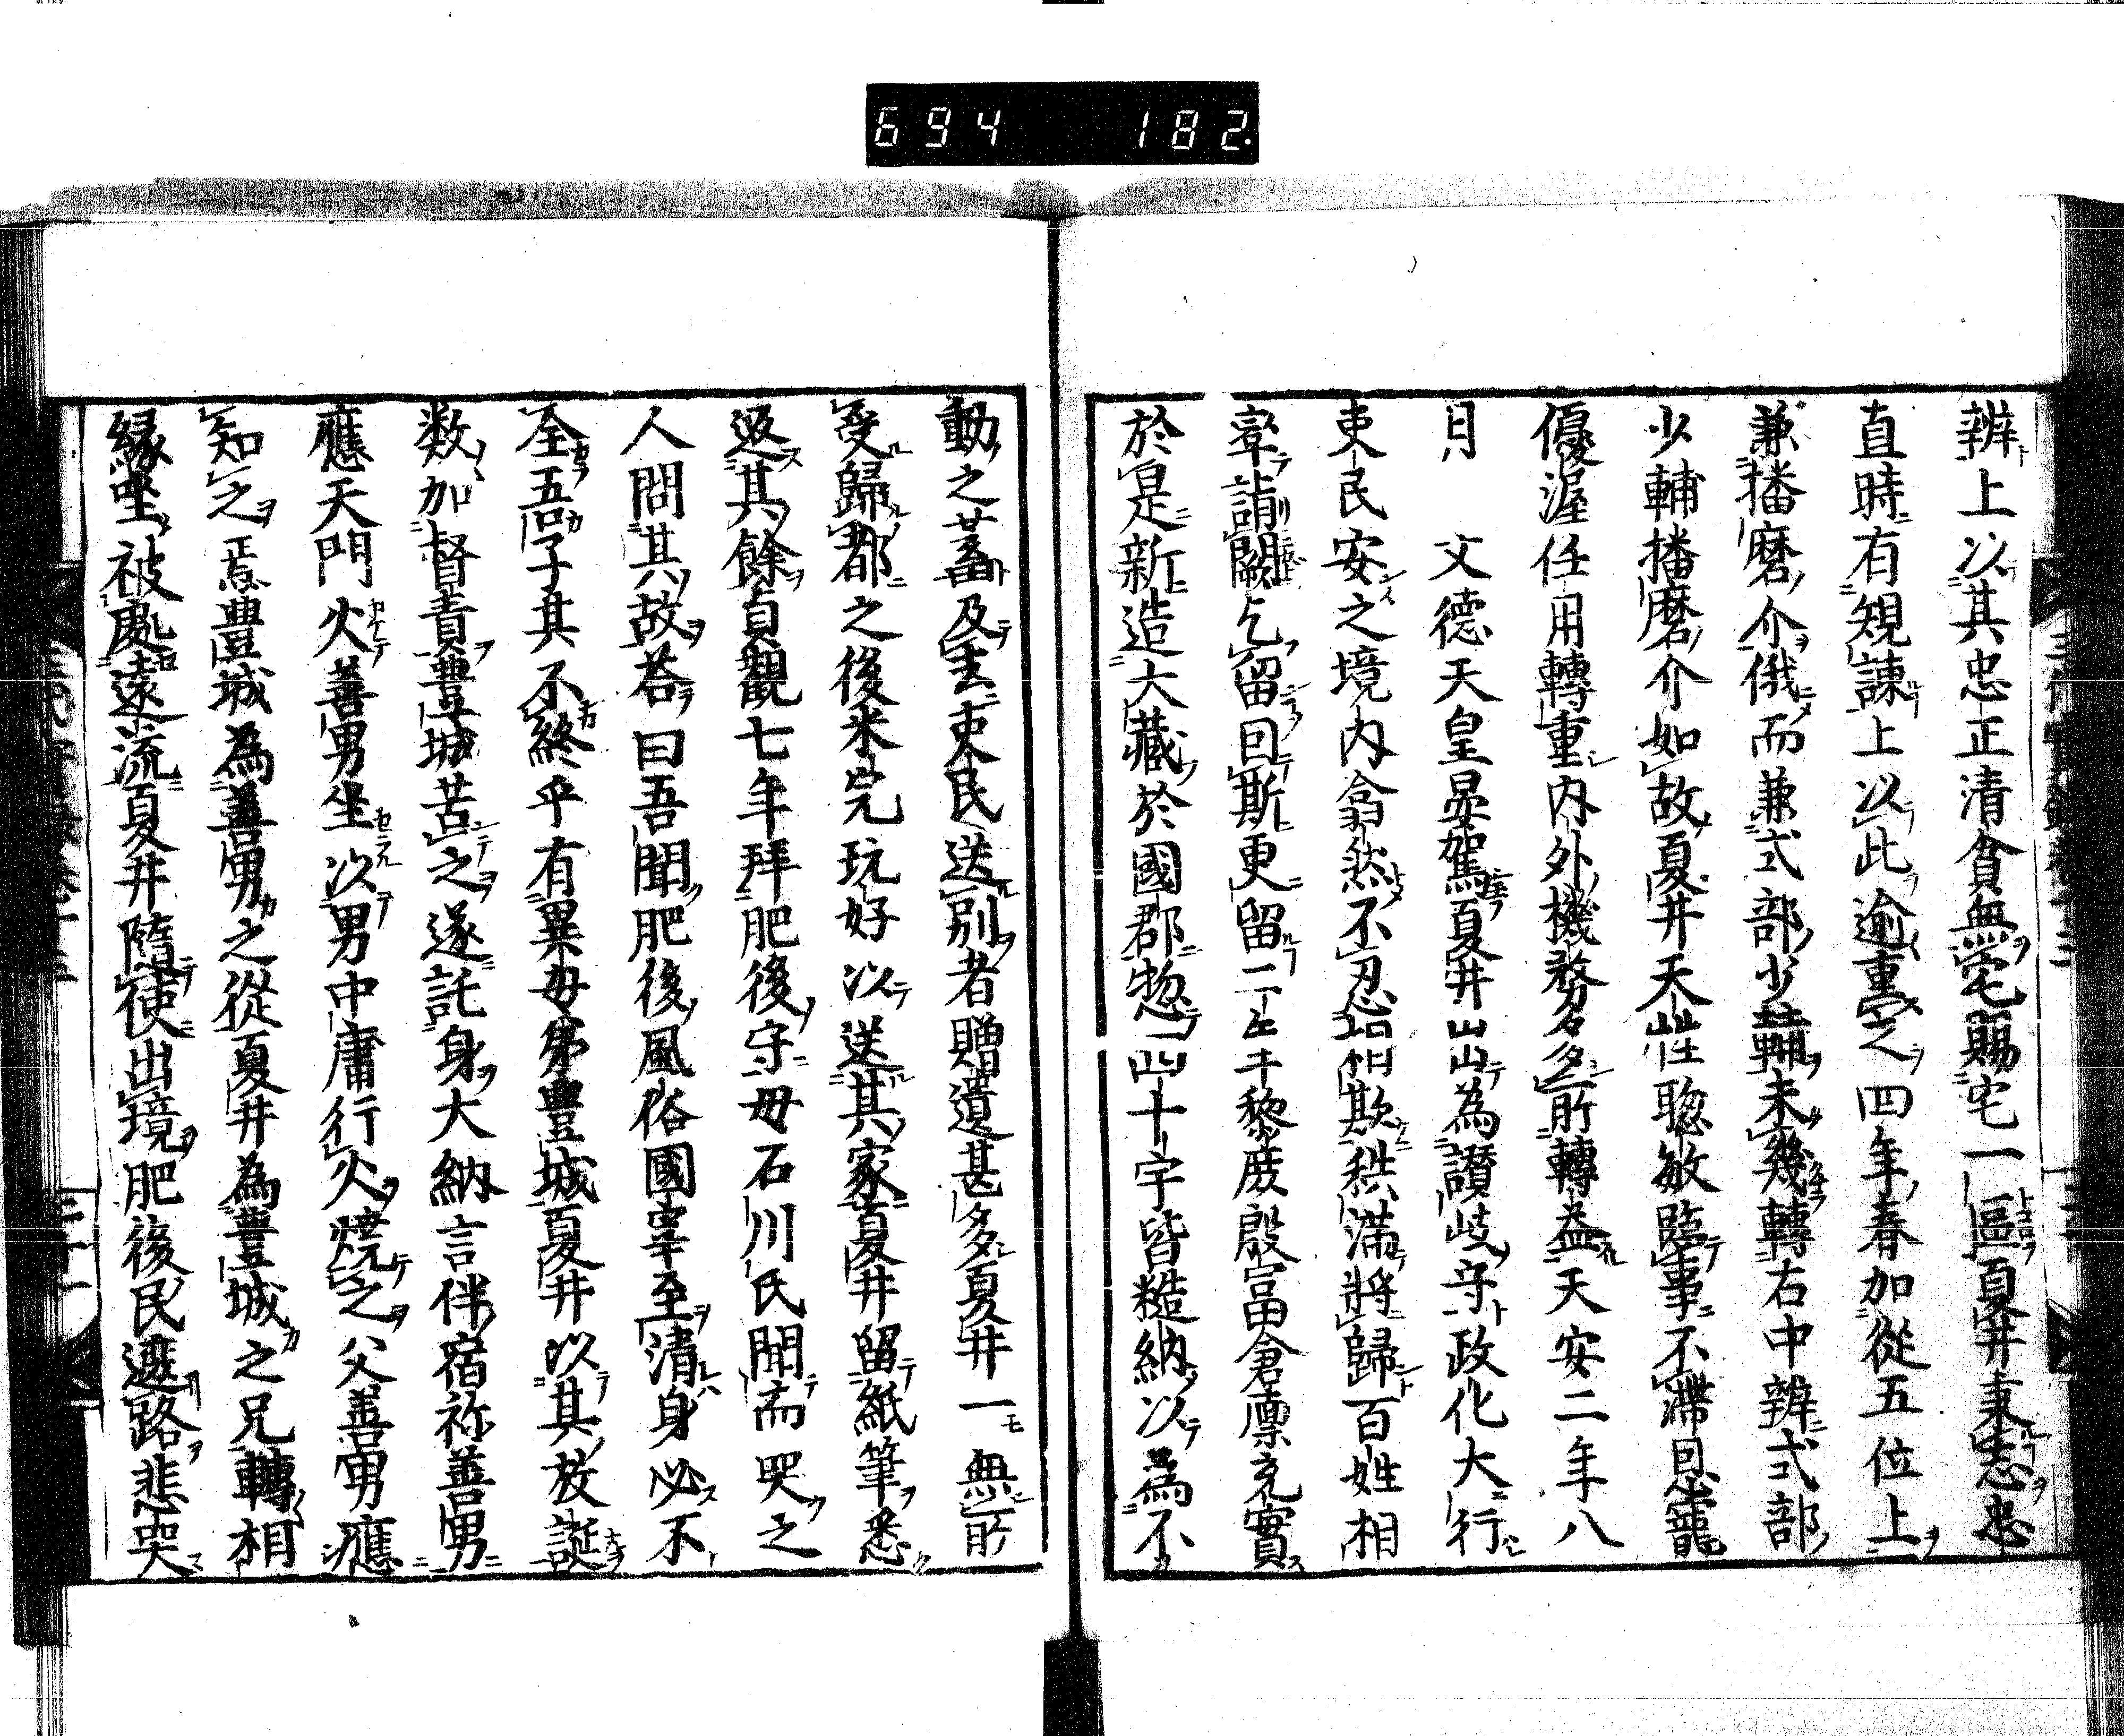 694 182.
辨上以其忠正清貧無宅賜宅一區夏井秉志忠
直時有規諫上以此逾重之四年春加從五位上
兼播磨介俄而兼式部少輔未幾轉右中辨式部
少輔播磨介如故夏井天性聦敏臨事不滯恩寵
優渥任用轉重内外機務多所轉益天安二年八
月　文德天皇晏駕夏井出為讃岐守政化大行
吏民安之境内翕然不忍相欺秩滿將歸百姓相
率詣闕乞留因斯更留二年黎庶殷富倉廩充實
於是新造大藏於國郡惣四十宇皆糙納以為不
動之蓄及去吏民送別者贈遺甚多夏井一無所
受歸都之後米完玩好以送其家夏井留紙筆悉
返其餘貞觀七年拜肥後守母石川氏聞而哭之
人問其故荅曰吾聞肥後風俗國宰至清身必不
全吾子其不終乎有異母弟豐城夏井以其放誕
数加督責豐城苦之遂託身大納言伴宿祢善男
應天門火善男坐以男中庸行火燒之父善男應
知之焉豐城為善男之從夏井為豐城之兄轉相
縁坐被處遠流夏井隨使出境肥後民遮路悲哭